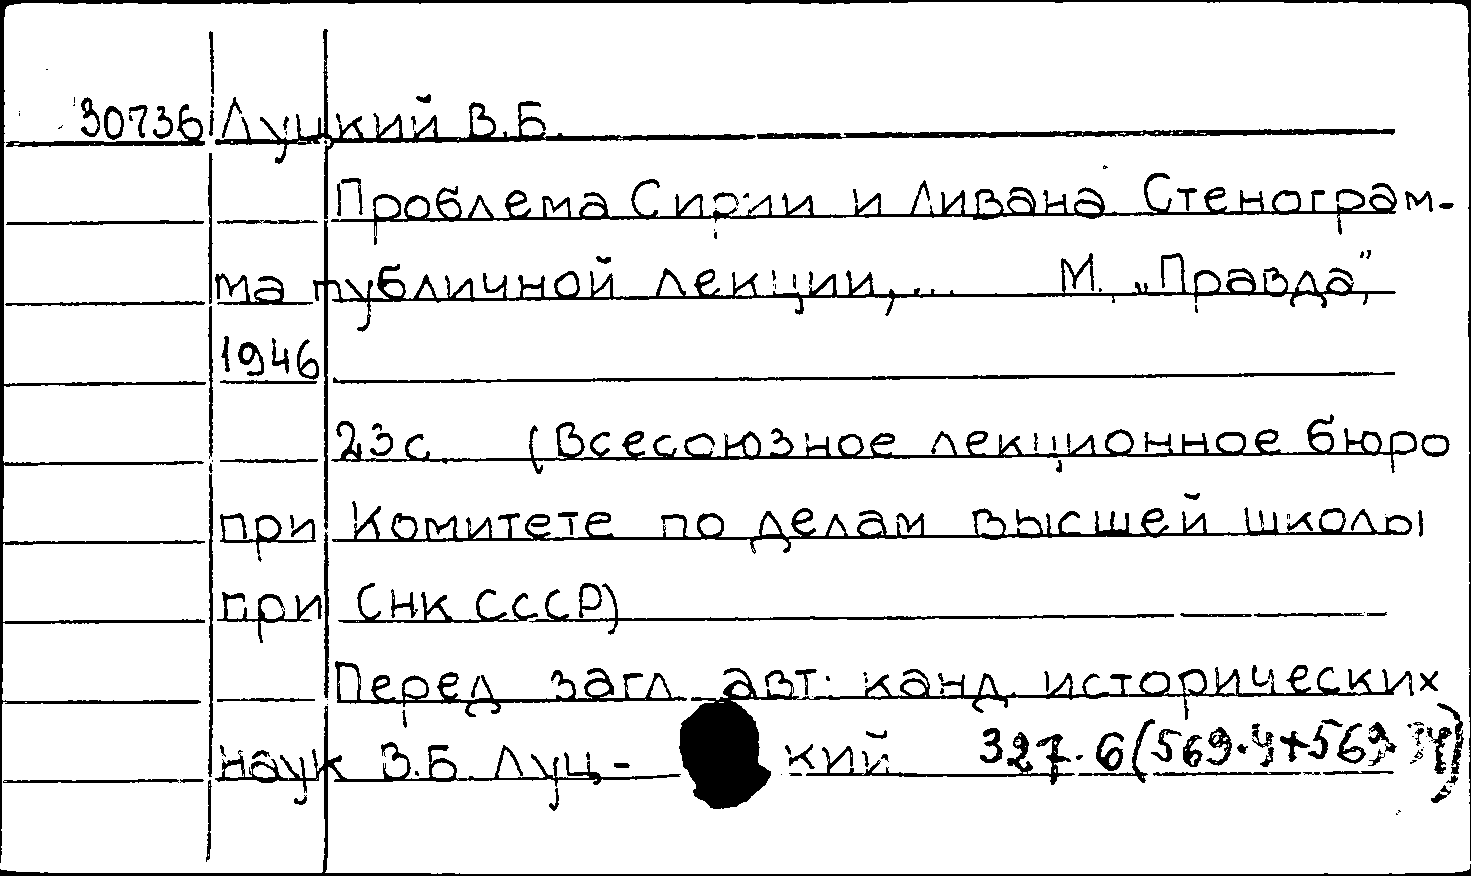 30736 Луцкий В.Б.
Проблема Сирии и Ливана. Стенограм-
ма публичной лекции,... М., „Правда",
1946
23 с. (Всесоюзное лекционное бюро
при Комитете по делам высшей школы
при СНК СССР)
Перед загл. авт.: канд. исторических
наук В.Б. Луц- кий 327.6(569.4+569.34)